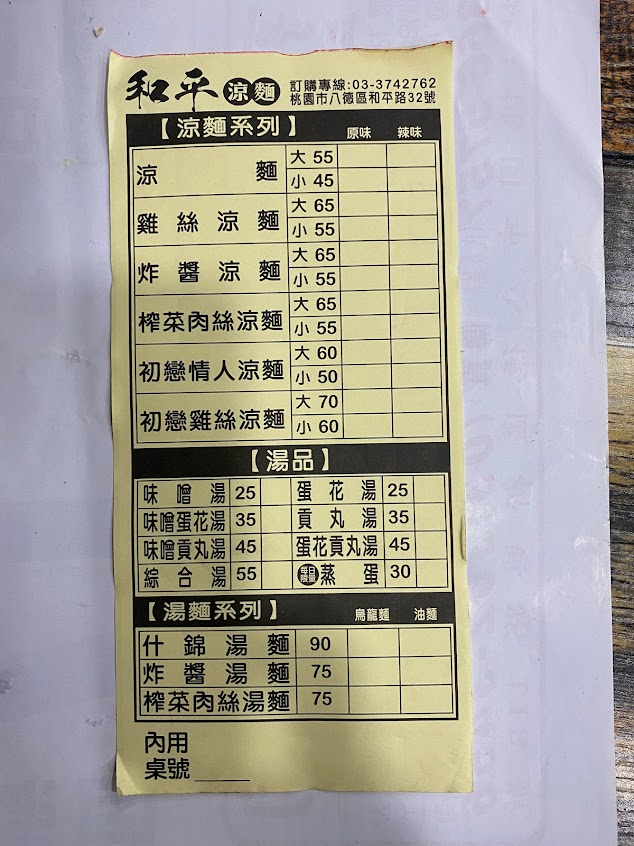 和平涼麵 訂購專線:03-3742762
桃園市八德區和平路32號
【涼麵系列】 原味 辣味
涼麵 大 55
小 45
雞絲涼麵 大 65
小 55
炸醬涼麵 大 65
小 55
榨菜肉絲涼麵 大 65
小 55
初戀情人涼麵 大 60
小 50
初戀雞絲涼麵 大 70
小 60
【湯品】
味噌湯 25 蛋花湯 25
味噌蛋花湯 35 貢丸湯 35
味噌貢丸湯 45 蛋花貢丸湯 45
綜合湯 55 每日限量 蒸蛋 30
【湯麵系列】 烏龍麵 油麵
什錦湯麵 90
炸醬湯麵 75
榨菜肉絲湯麵 75
內用
桌號